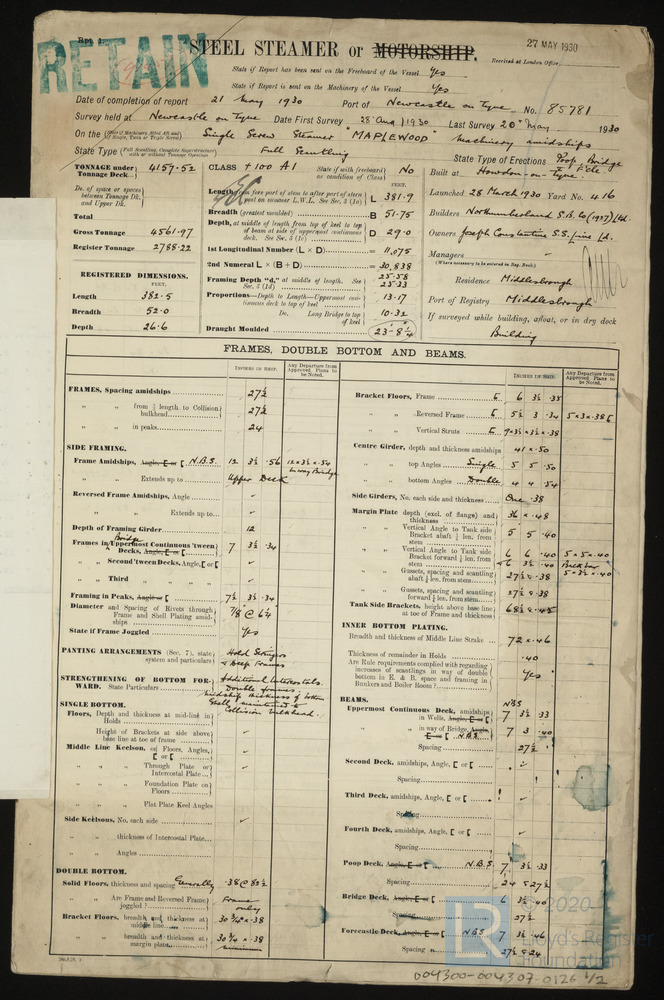 Rpt. 4.
RETAIN
STEEL STEAMER or MOTORSHIP.
27 MAY 1930
Received at London Office
State if Report has been sent on the Freeboard of the Vessel Yes
State if Report is sent on the Machinery of the Vessel Yes
Date of completion of report 21 May 1930 Port of Newcastle on Tyne No. 85781
Survey held at Newcastle on Tyne Date First Survey 28 Aug Last Survey 20 May 1930
On the Single Screw Steamer "MAPLEWOOD" Machinery amidships
State Type Full Scantling State Type of Erections Poop Bridge
TONNAGE under Tonnage Deck 4159.52
CLASS +100 A1 State if with freeboard as condition of Class No
Built at Howdon-on-Tyne
Do. of space or spaces between Tonnage Dk. and Upper Dk.
Total
Gross Tonnage 4561.97
Register Tonnage 2788.22
FEET.
Length from fore part of stem to after part of stern post on summer L.W.L. See Sec. 3 (1a) L 381.9
Breadth (greatest moulded) B 51.75
Depth, at middle of length from top of keel to top of beam at side of uppermost continuous deck. See Sec. 3 (1c) D 29.0
1st Longitudinal Number (L × D) = 11,075
2nd Numeral L × (B + D) = 30,838
Framing Depth "d," at middle of length. See Sec. 3 (1d) 25.58
25.33
Proportions—Depth to Length—Uppermost continuous deck to top of keel 13.17
Do. Long Bridge to top of keel 10.32
Draught Moulded 23-8¼
Launched 28 March 1930 Yard No. 416
Builders Northumberland S.B. Co (1927) Ltd.
Owners Joseph Constantine S.S. Line Ld.
Managers
(Where necessary to be entered in Reg. Book)
Residence Middlesbrough
Port of Registry Middlesbrough
If surveyed while building, afloat, or in dry dock
Building
REGISTERED DIMENSIONS.
FEET.
Length 382.5
Breadth 52.0
Depth 26.6
FRAMES, DOUBLE BOTTOM AND BEAMS.
INCHES IN SHIP.
Any Departure from Approved Plans to be Noted.
FRAMES, Spacing amidships 27½
" " from ⅕ length to Collision bulkhead 27½
" " in peaks 24
SIDE FRAMING.
Frame Amidships, Angle, E or [ N.B.S. 12 3½ .56 12 × 3½ × .54 in way Bridge
" " Extends up to Upper Deck
Reversed Frame Amidships, Angle
" " " Extends up to
Depth of Framing Girder 12
Frames in Uppermost Continuous 'tween Decks, Angle, E or [ Bridge 7 3½ .34
" " Second 'tween Decks, Angle, [ or [
" " Third " " " "
Framing in Peaks, Angle or [ 7½ 3½ .34
Diameter and Spacing of Rivets through Frame and Shell Plating amidships 7/8 @ 6¼
State if Frame Joggled Yes
PANTING ARRANGEMENTS (Sec. 7), state system and particulars Hold Stringers & Deep Frames
STRENGTHENING OF BOTTOM FORWARD. State Particulars Additional Intercostals. Double frames, midship thickness of bottom Shell maintained to Collision bulkhead.
SINGLE BOTTOM.
Floors, Depth and thickness at mid-line in Holds
Height of Brackets at side above base line at toe of frame
Middle Line Keelson, on Floors, Angles, [ or [
" " " Through Plate or Intercostal Plate
" " " Foundation Plate on Floors
" " " Flat Plate Keel Angles
Side Keelsons, No. each side
" " thickness of Intercostal Plate
" " Angles
DOUBLE BOTTOM.
Solid Floors, thickness and spacing Generally .38 @ 82½
" " Are Frame and Reversed Frame joggled? Frame only
Bracket Floors, breadth and thickness at middle line 30¾ × .38
" " breadth and thickness at margin plate 30¾ × .38
Bracket Floors, Frame 6 3½ .38
" " Reversed Frame 5½ 3 .34 5 × 3 × .38
" " Vertical Struts 9 × 3½ × 3½ × .38
Centre Girder, depth and thickness amidships 41 × .50
" " top Angles Single 5 5 .50
" " bottom Angles Double 4 4 .54
Side Girders, No. each side and thickness One .38
Margin Plate depth (excl. of flange) and thickness 36 × .48
" " Vertical Angle to Tank side Bracket abaft ¼ len. from stem 5 5 .40
" " Vertical Angle to Tank side Bracket forward ¼ len. from stem 6 6 .40 5 × 5 × .40
" " Gussets, spacing and scantling abaft ¼ len. from stem 27½ & .38
" " Gussets, spacing and scantling forward ¼ len. from stem 27½ & .38
Tank Side Brackets, height above base line at toe of Frame and thickness 68½ × .45
INNER BOTTOM PLATING.
Breadth and thickness of Middle Line Strake 72 × .46
Thickness of remainder in Holds .40
Are Rule requirements complied with regarding increases of scantlings in way of double bottom in E. & B. space and framing in Bunkers and Boiler Room? Yes
BEAMS.
Uppermost Continuous Deck, amidships in Wells, Angle, E or [ NBS 7 3½ .33
" " in way of Bridge, Angle, E or [ N.B.S. 7 3 .40
Spacing 27½
Second Deck, amidships, Angle, [ or [
Spacing
Third Deck, amidships, Angle, [ or [
Spacing
Fourth Deck, amidships, Angle, [ or [
Spacing
Poop Deck, Angle, E or [ N.B.S. 7 3½ .33
Spacing 24 & 27½
Bridge Deck, Angle, E or [ 6 3½ .40
Spacing 27½
Forecastle Deck, Angle, E or [ NBS 7 3½ .46
Spacing 27½ & 24
© 2020
LR
Lloyd's Register
Foundation
004300-004307-0126 1/2